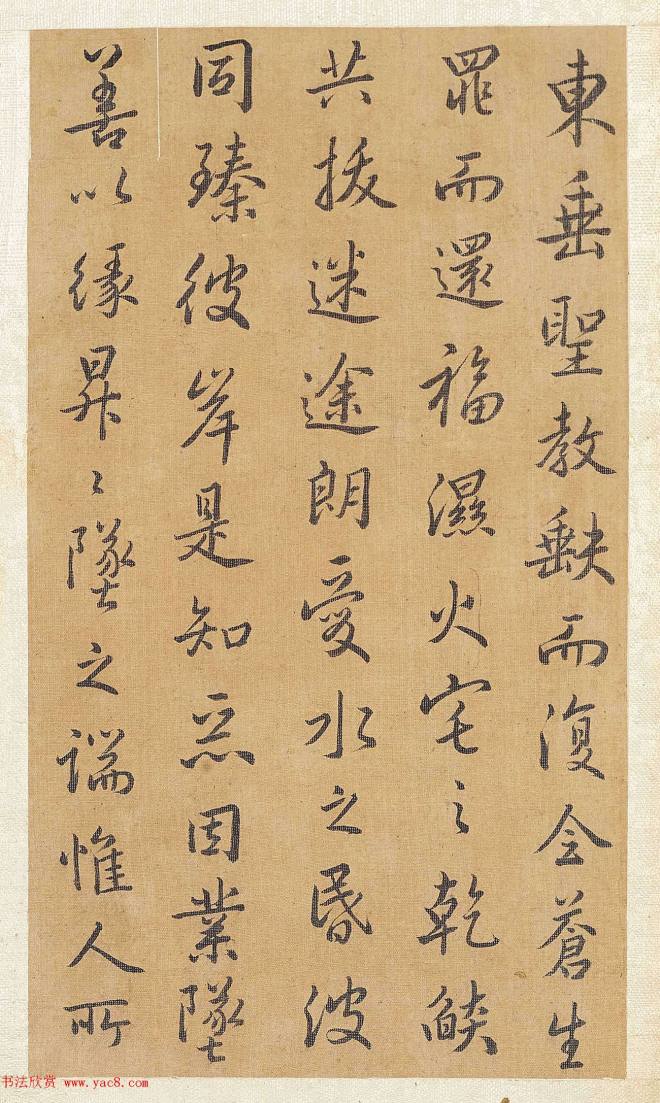 東垂聖教缺而復全蒼生
罪而還福濕火宅之乾燄
共拔迷途朗愛水之昏波
同臻彼岸是知惡因業墜
善以緣昇〻墜之端惟人所
书法欣赏 www.yac8.com